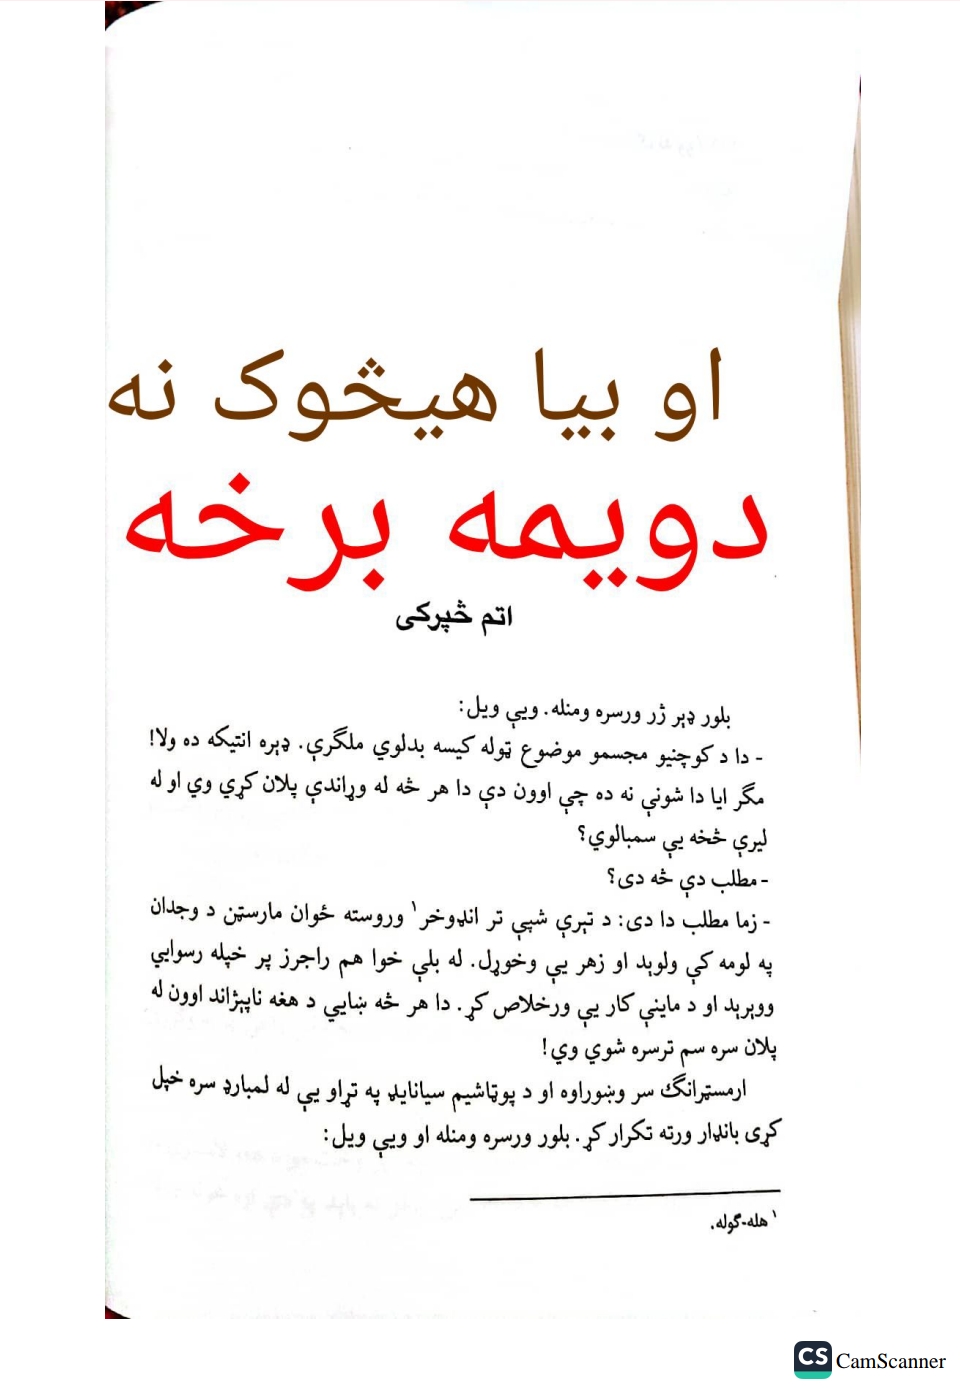 او بیا هیڅوک نه
دویمه برخه
اتم څپرکی
بلور ډېر ژر ورسره ومنله. ویې ویل:
- دا د کوچنیو مجسمو موضوع ټوله کیسه بدلوي ملګرې. ډېره انتیکه ده ولا!
مګر ایا دا شونې نه ده چې اوون دې دا هر څه له وړاندې پلان کړي وي او له
لیرې څخه یې سمبالوي؟
- مطلب دې څه دی؟
- زما مطلب دا دی: د تېرې شپې تر انډوخر۱ وروسته ځوان مارسټن د وجدان
په لومه کې ولوېد او زهر یې وخوړل. له بلې خوا هم راجرز پر خپله رسوایي
ووېرېد او د ماینې کار یې ورخلاص کړ. دا هر څه ښایي د هغه ناپېژاند اوون له
پلان سره سم ترسره شوي وي!
ارمسټرانګ سر وښوراوه او د پوټاشیم سیانایډ په تړاو یې له لمبارډ سره خپل
کړی بانډار ورته تکرار کړ. بلور ورسره ومنله او ویې ویل:
۱ هله-ګوله.
CS CamScanner